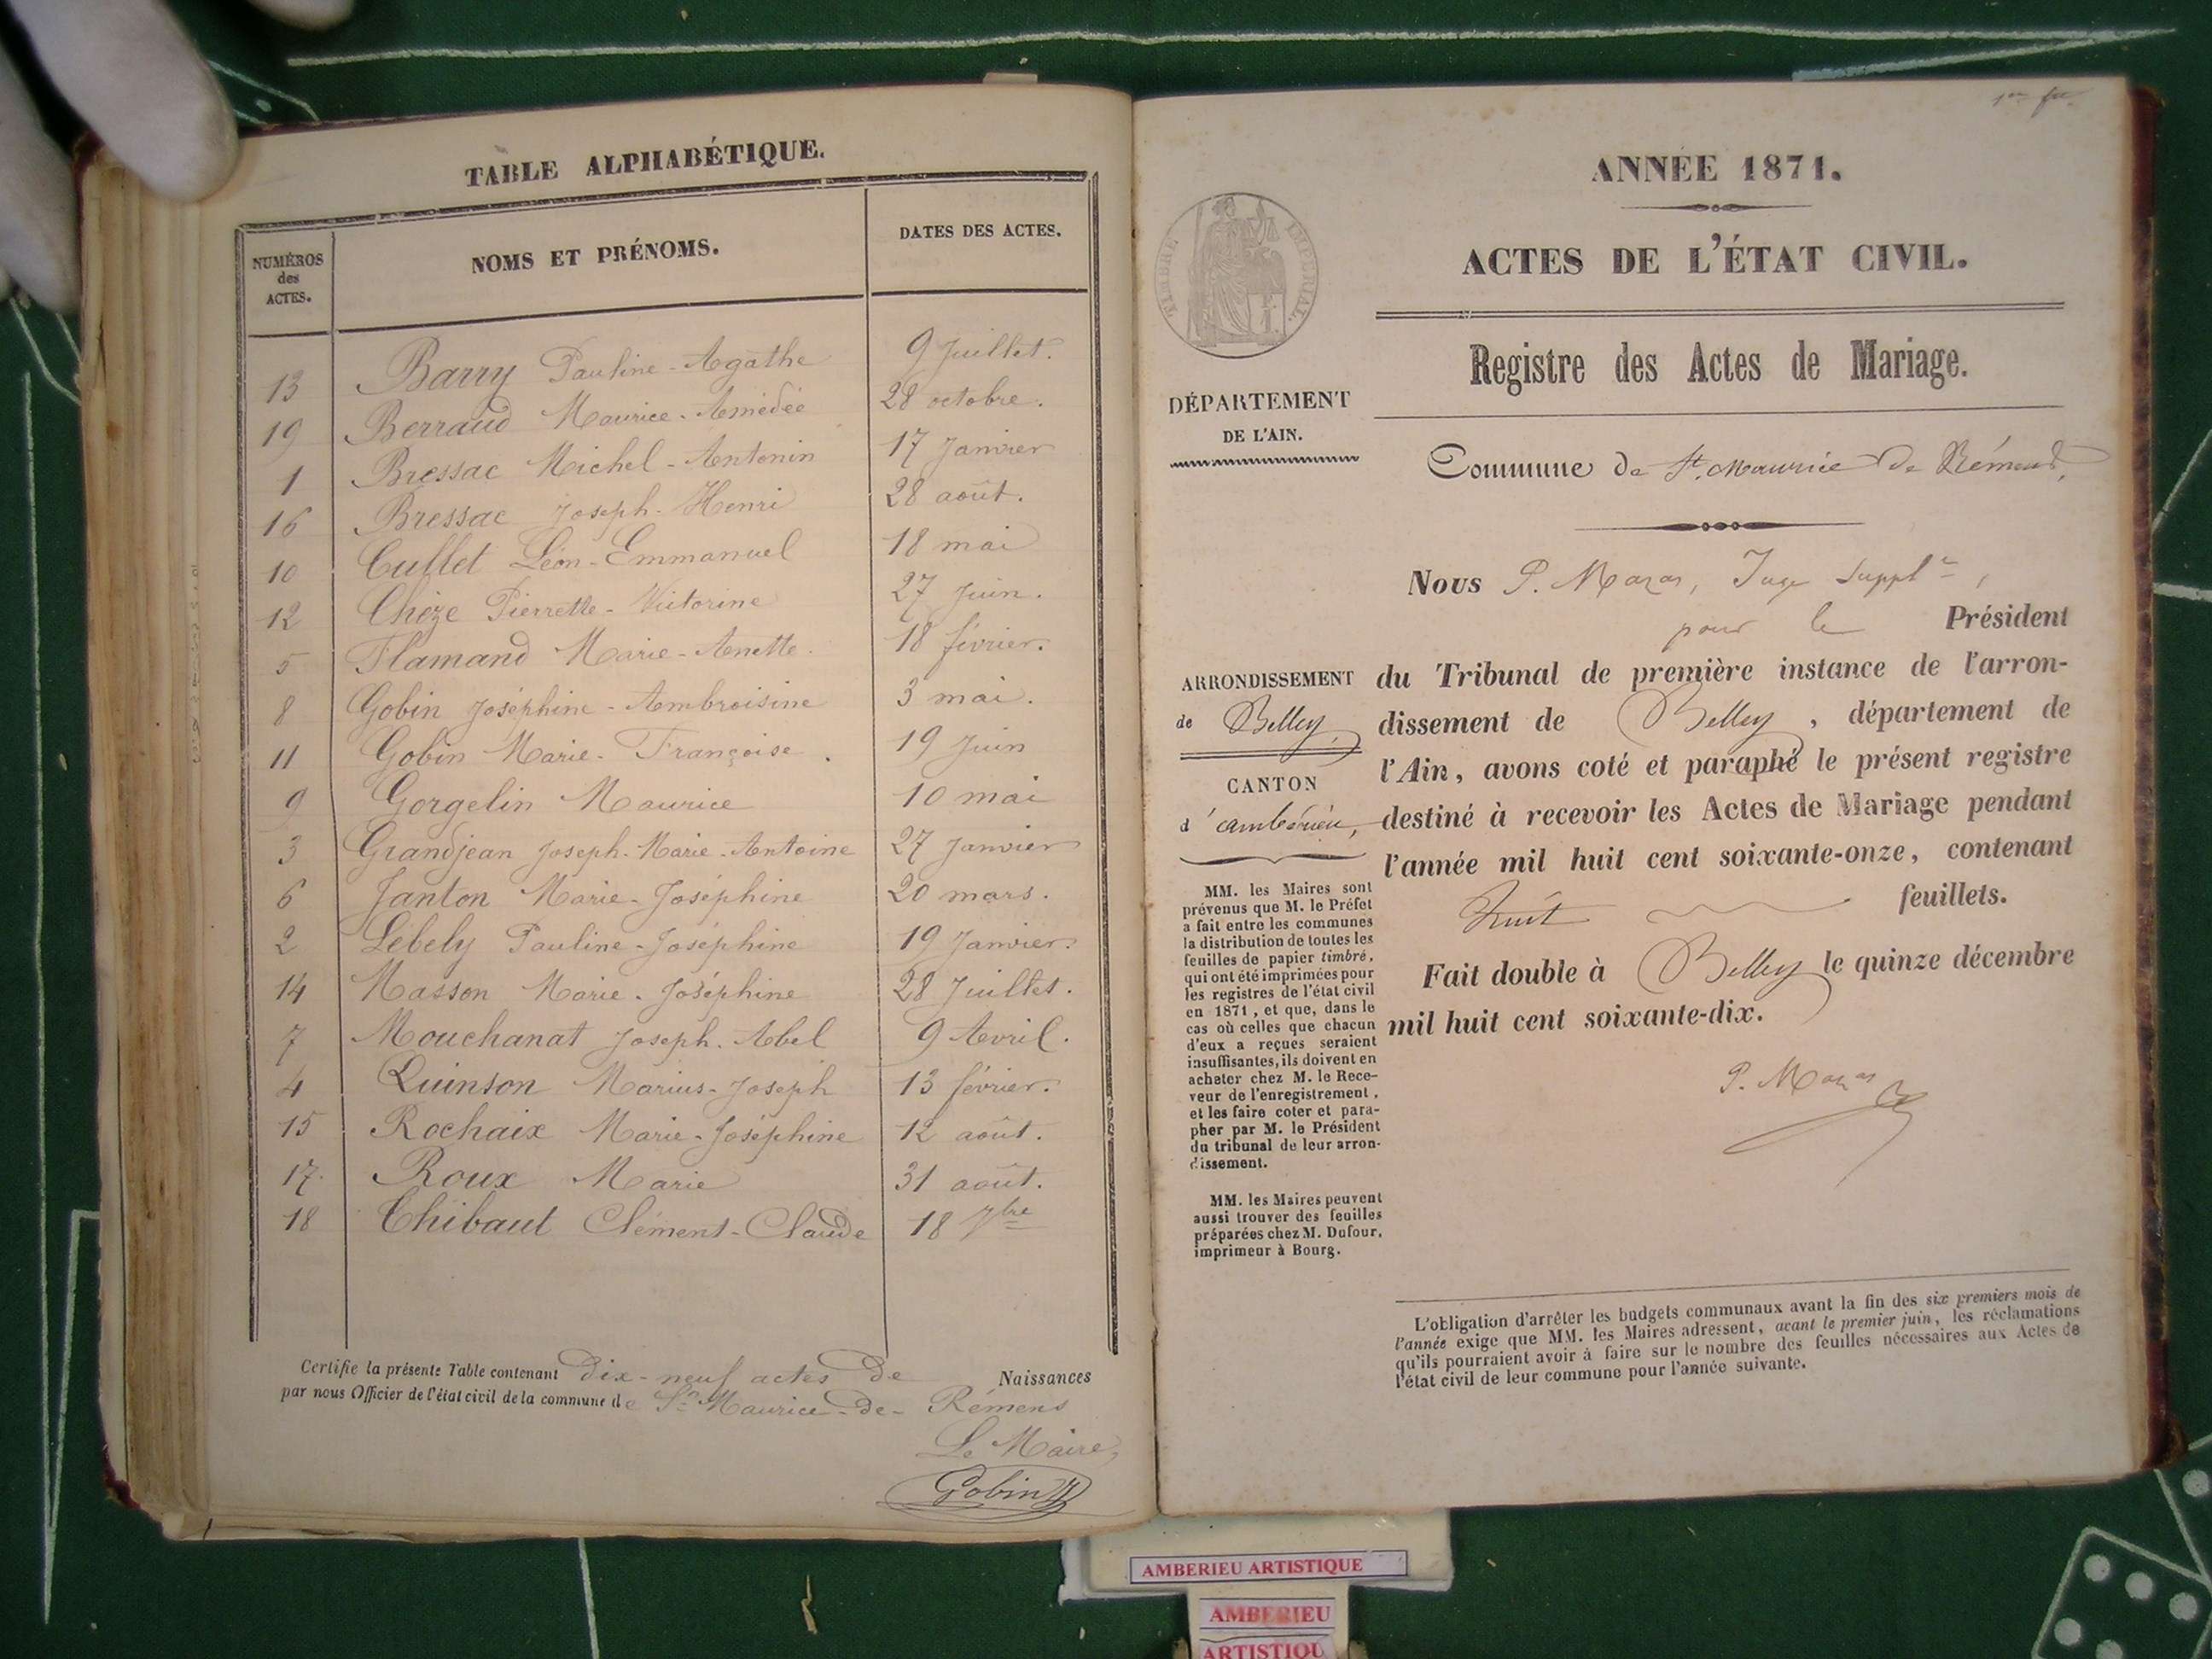 TABLE ALPHABÉTIQUE.
NUMÉROS des ACTES. NOMS ET PRÉNOMS. DATES DES ACTES.
13 Barry Pauline-Agathe 9 Juillet.
19 Berraud Maurice-Amédée 28 octobre.
1 Bressac Michel-Antonin 17 Janvier
16 Bressac Joseph-Henri 28 août.
10 Cullet Léon-Emmanuel 18 mai
12 Chèze Pierrette-Victorine 27 Juin.
5 Flamand Marie-Anette. 18 février.
8 Gobin Joséphine-Ambroisine 3 mai.
11 Gobin Marie-Françoise. 19 Juin
9 Gorgelin Maurice 10 mai
3 Grandjean Joseph-Marie-Antoine 27 Janvier
6 Janton Marie-Joséphine 20 mars.
2 Lébely Pauline-Joséphine 19 Janvier.
14 Masson Marie-Joséphine 28 Juillet.
7 Mouchanat Joseph-Abel 9 Avril.
4 Quinson Marius-Joseph 13 février.
15 Rochaix Marie-Joséphine 12 août.
17. Roux Marie 31 août.
18 Thibaut Clément-Claude 18 7bre
Certifie la présente Table contenant dix-neuf actes de Naissances
par nous Officier de l'état civil de la commune de St Maurice-de-Rémens
Le Maire,
Gobin
1er fet.
ANNÉE 1871.
ACTES DE L'ÉTAT CIVIL.
TIMBRE IMPERIAL
Registre des Actes de Mariage.
DÉPARTEMENT
DE L'AIN.
Commune de St. Maurice de Rémens,
Nous P. Mazas, Juge Supplt,
pour le Président
du Tribunal de première instance de l'arron-
dissement de Belley, département de
l'Ain, avons coté et paraphé le présent registre
destiné à recevoir les Actes de Mariage pendant
l'année mil huit cent soixante-onze, contenant
huit feuillets.
Fait double à Belley le quinze décembre
mil huit cent soixante-dix.
P. Mazas
ARRONDISSEMENT
de Belley,
CANTON
d'ambérieu,
MM. les Maires sont
prévenus que M. le Préfet
a fait entre les communes
la distribution de toutes les
feuilles de papier timbré,
qui ont été imprimées pour
les registres de l'état civil
en 1871, et que, dans le
cas où celles que chacun
d'eux a reçues seraient
insuffisantes, ils doivent en
acheter chez M. le Rece-
veur de l'enregistrement,
et les faire coter et para-
pher par M. le Président
du tribunal de leur arron-
dissement.
MM. les Maires peuvent
aussi trouver des feuilles
préparées chez M. Dufour,
imprimeur à Bourg.
L'obligation d'arrêter les budgets communaux avant la fin des six premiers mois de
l'année exige que MM. les Maires adressent, avant le premier juin, les réclamations
qu'ils pourraient avoir à faire sur le nombre des feuilles nécessaires aux Actes de
l'état civil de leur commune pour l'année suivante.
AMBERIEU ARTISTIQUE
AMBERIEU
ARTISTIQU